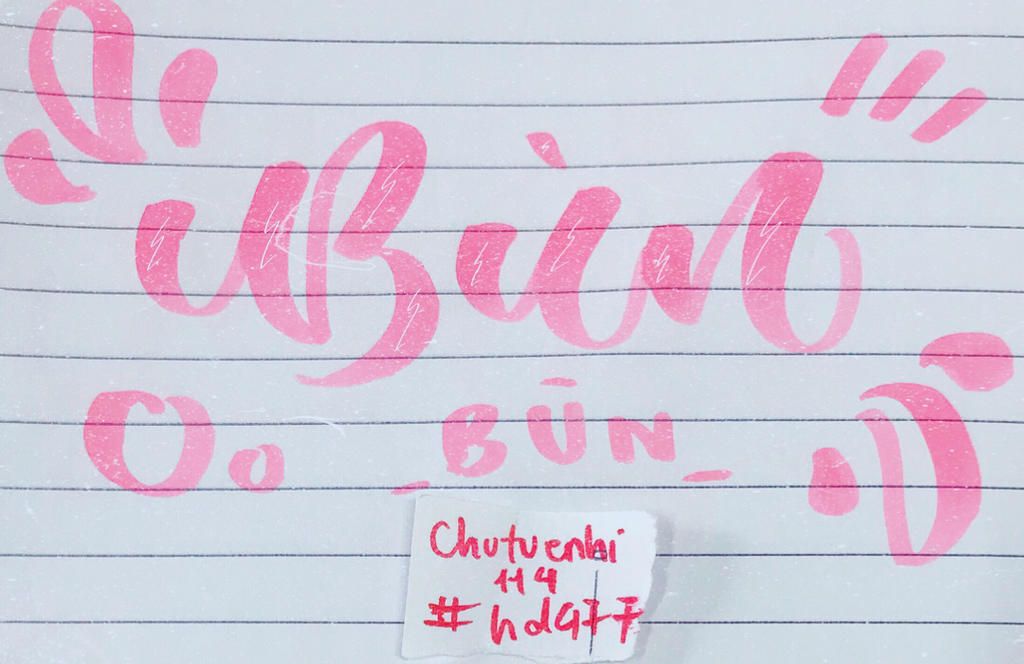 Bùn
_BŪN_
Chutuenhi
114
#hd477